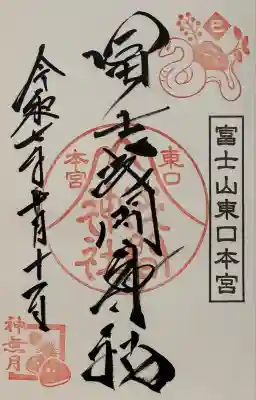 巳
富士山東口本宮
冨士浅間神社
東口
本宮
神社
令和七年十月十一日
神無月